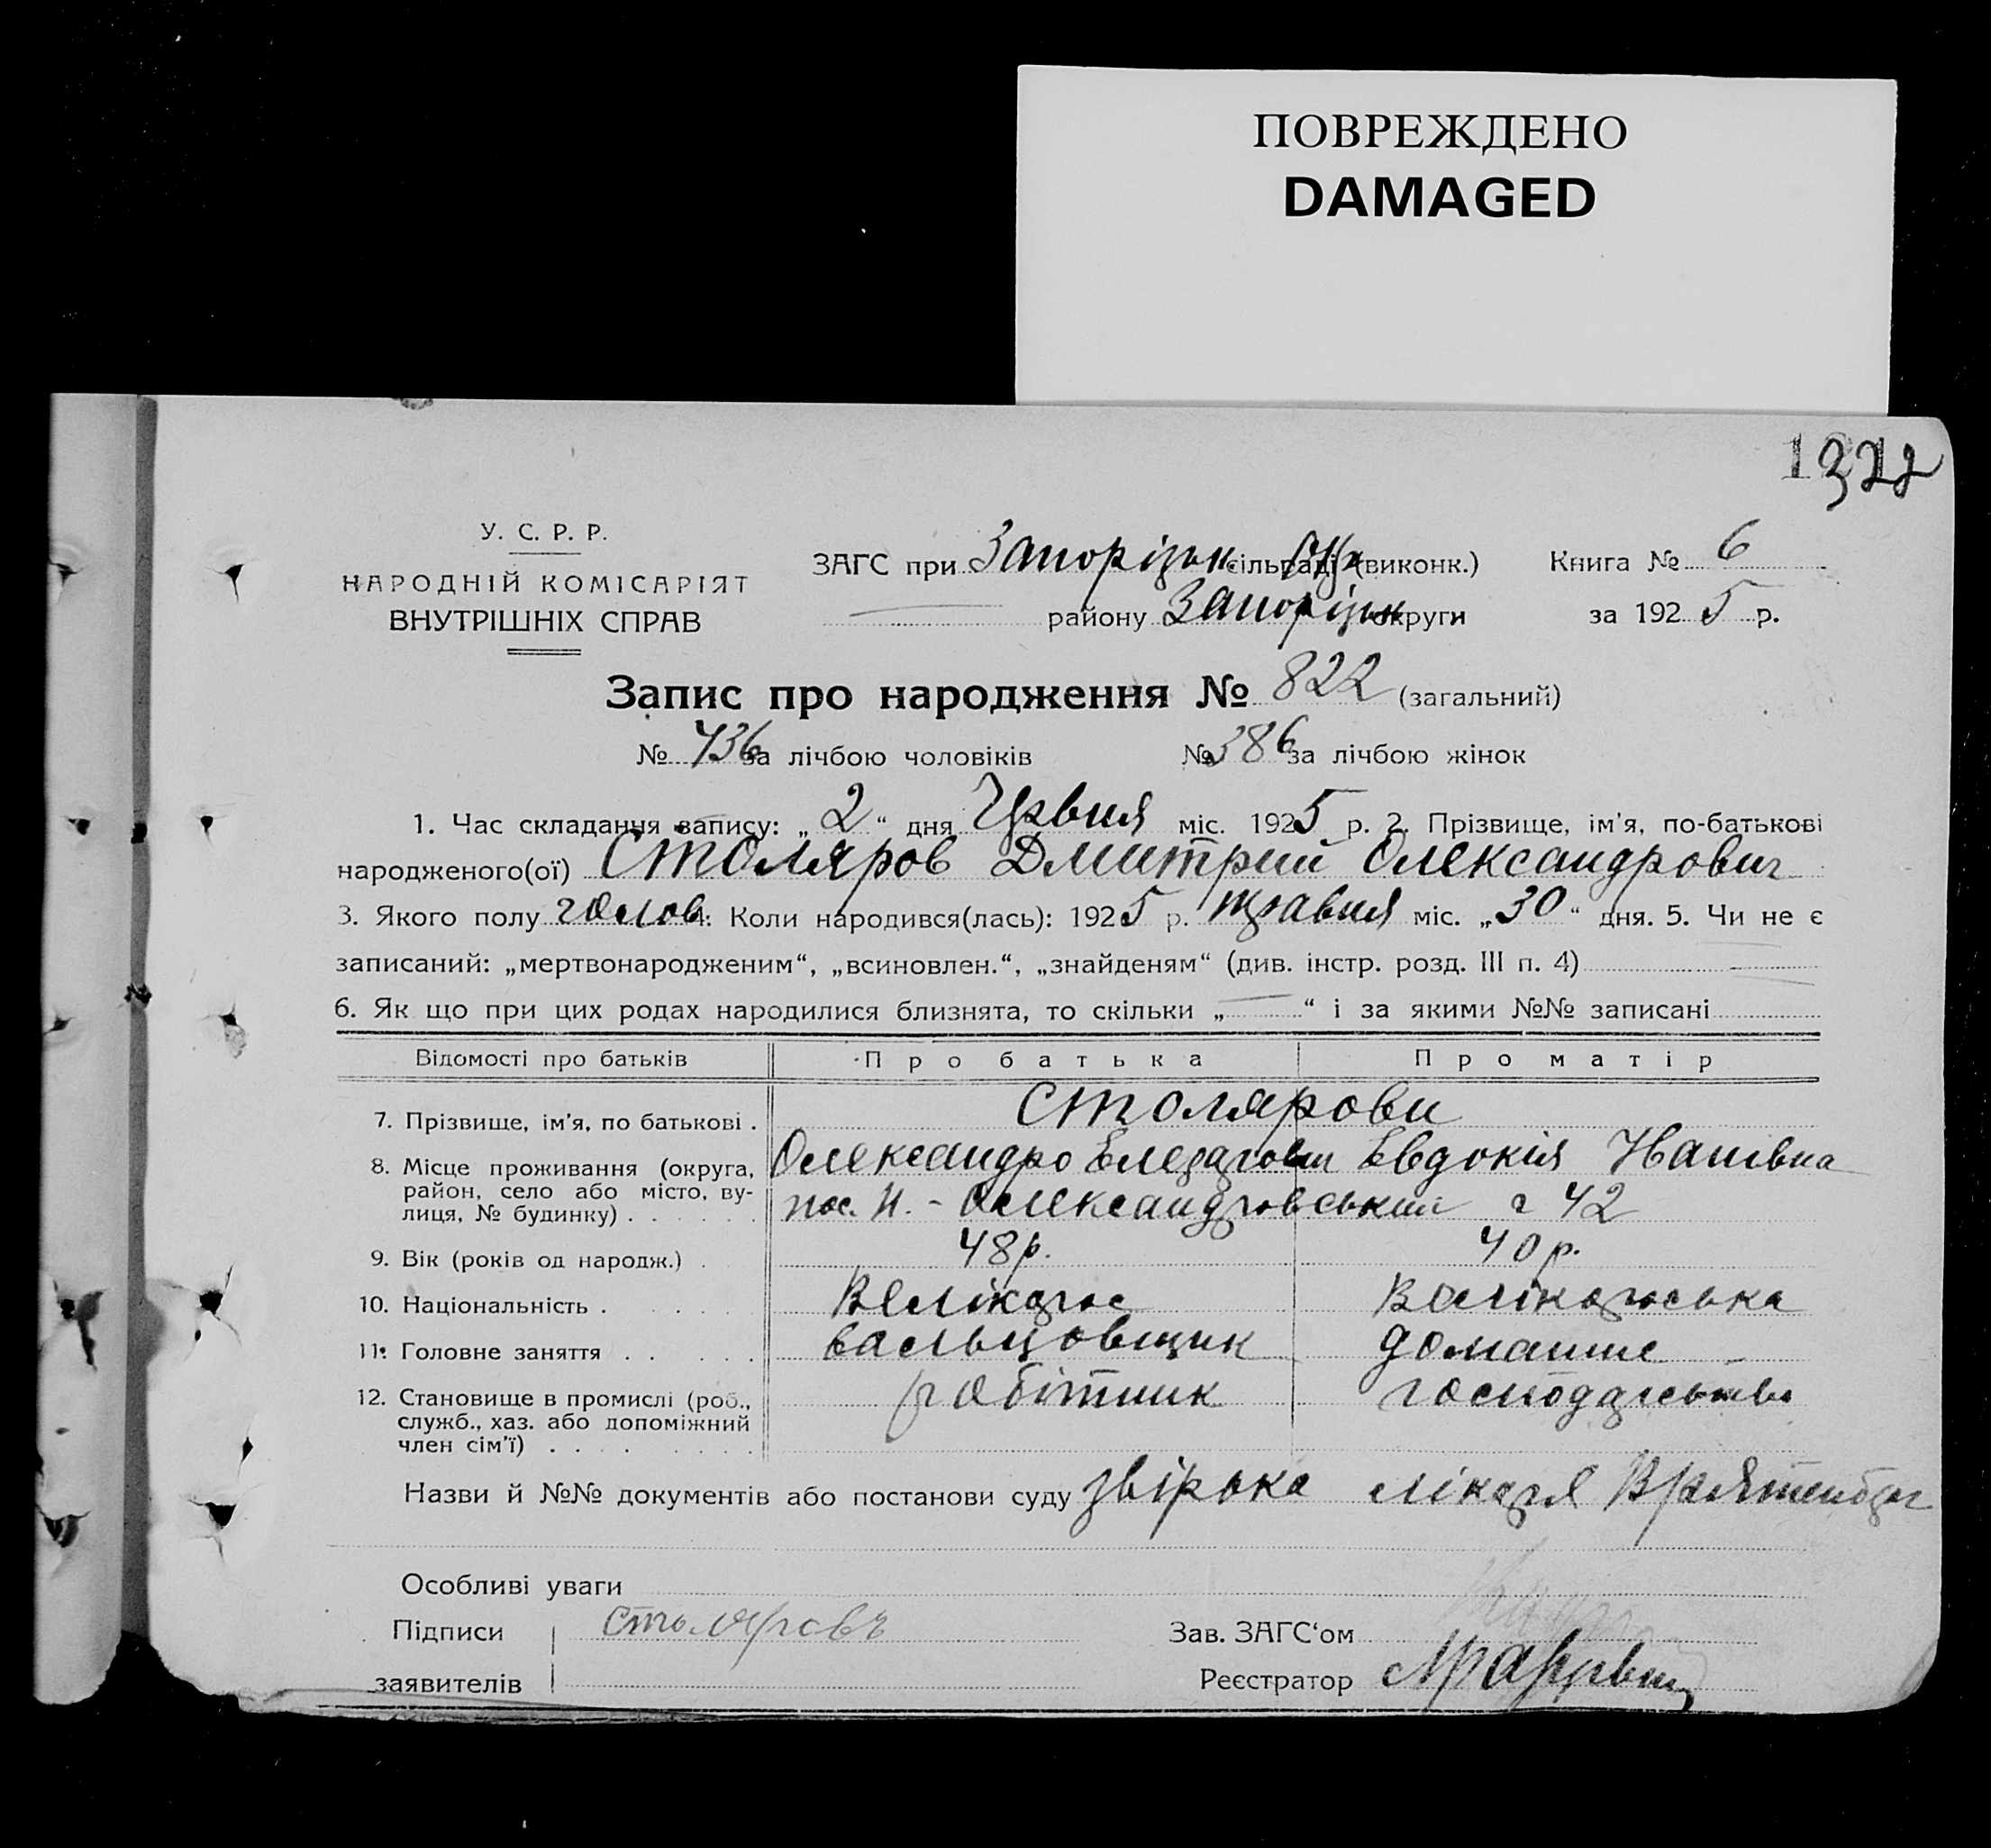 ПОВРЕЖДЕНО
DAMAGED
322
У. С. Р. Р.
НАРОДНІЙ КОМІСАРІЯТ
ВНУТРІШНІХ СПРАВ
ЗАГС при Запорізьк сільраді (виконк.) Книга № 6
району Запорізьк округи за 1925 р.
Запис про народження № 822 (загальний)
№ 436 за лічбою чоловіків № 386 за лічбою жінок
1. Час складання запису: „2“ дня Червня міс. 1925 р. 2. Прізвище, ім'я, по-батькові
народженого(ої) Столяров Дмитрий Олександрович
3. Якого полу голов 4: Коли народився(лась): 1925 р. травня міс. „30“ дня. 5. Чи не є
записаний: „мертвонародженим“, „всиновлен.“, „знайденям“ (див. інстр. розд. III п. 4)
6. Як що при цих родах народилися близнята, то скільки „—“ і за якими №№ записані
Відомості про батьків Про батька Про матір
7. Прізвище, ім'я, по батькові . Столярови
Олександро Елезарович Евдокія Іванівна
8. Місце проживання (округа,
район, село або місто, ву-
лиця, № будинку) . . . . . . пос. Н.-Олександровський 42
9. Вік (років од народж.) . 48 р. 40 р.
10. Національність . . . . . Велікорос Велікоруська
11. Головне заняття . . . . . вальцовщик домашнє
12. Становище в промислі (роб., робітник господарство
служб., хаз. або допоміжний
член сім'ї) . . . . . . . .
Назви й №№ документів або постанови суду лікаря
Особливі уваги
Підписи Столяровъ Зав. ЗАГС'ом
заявителів Реєстратор